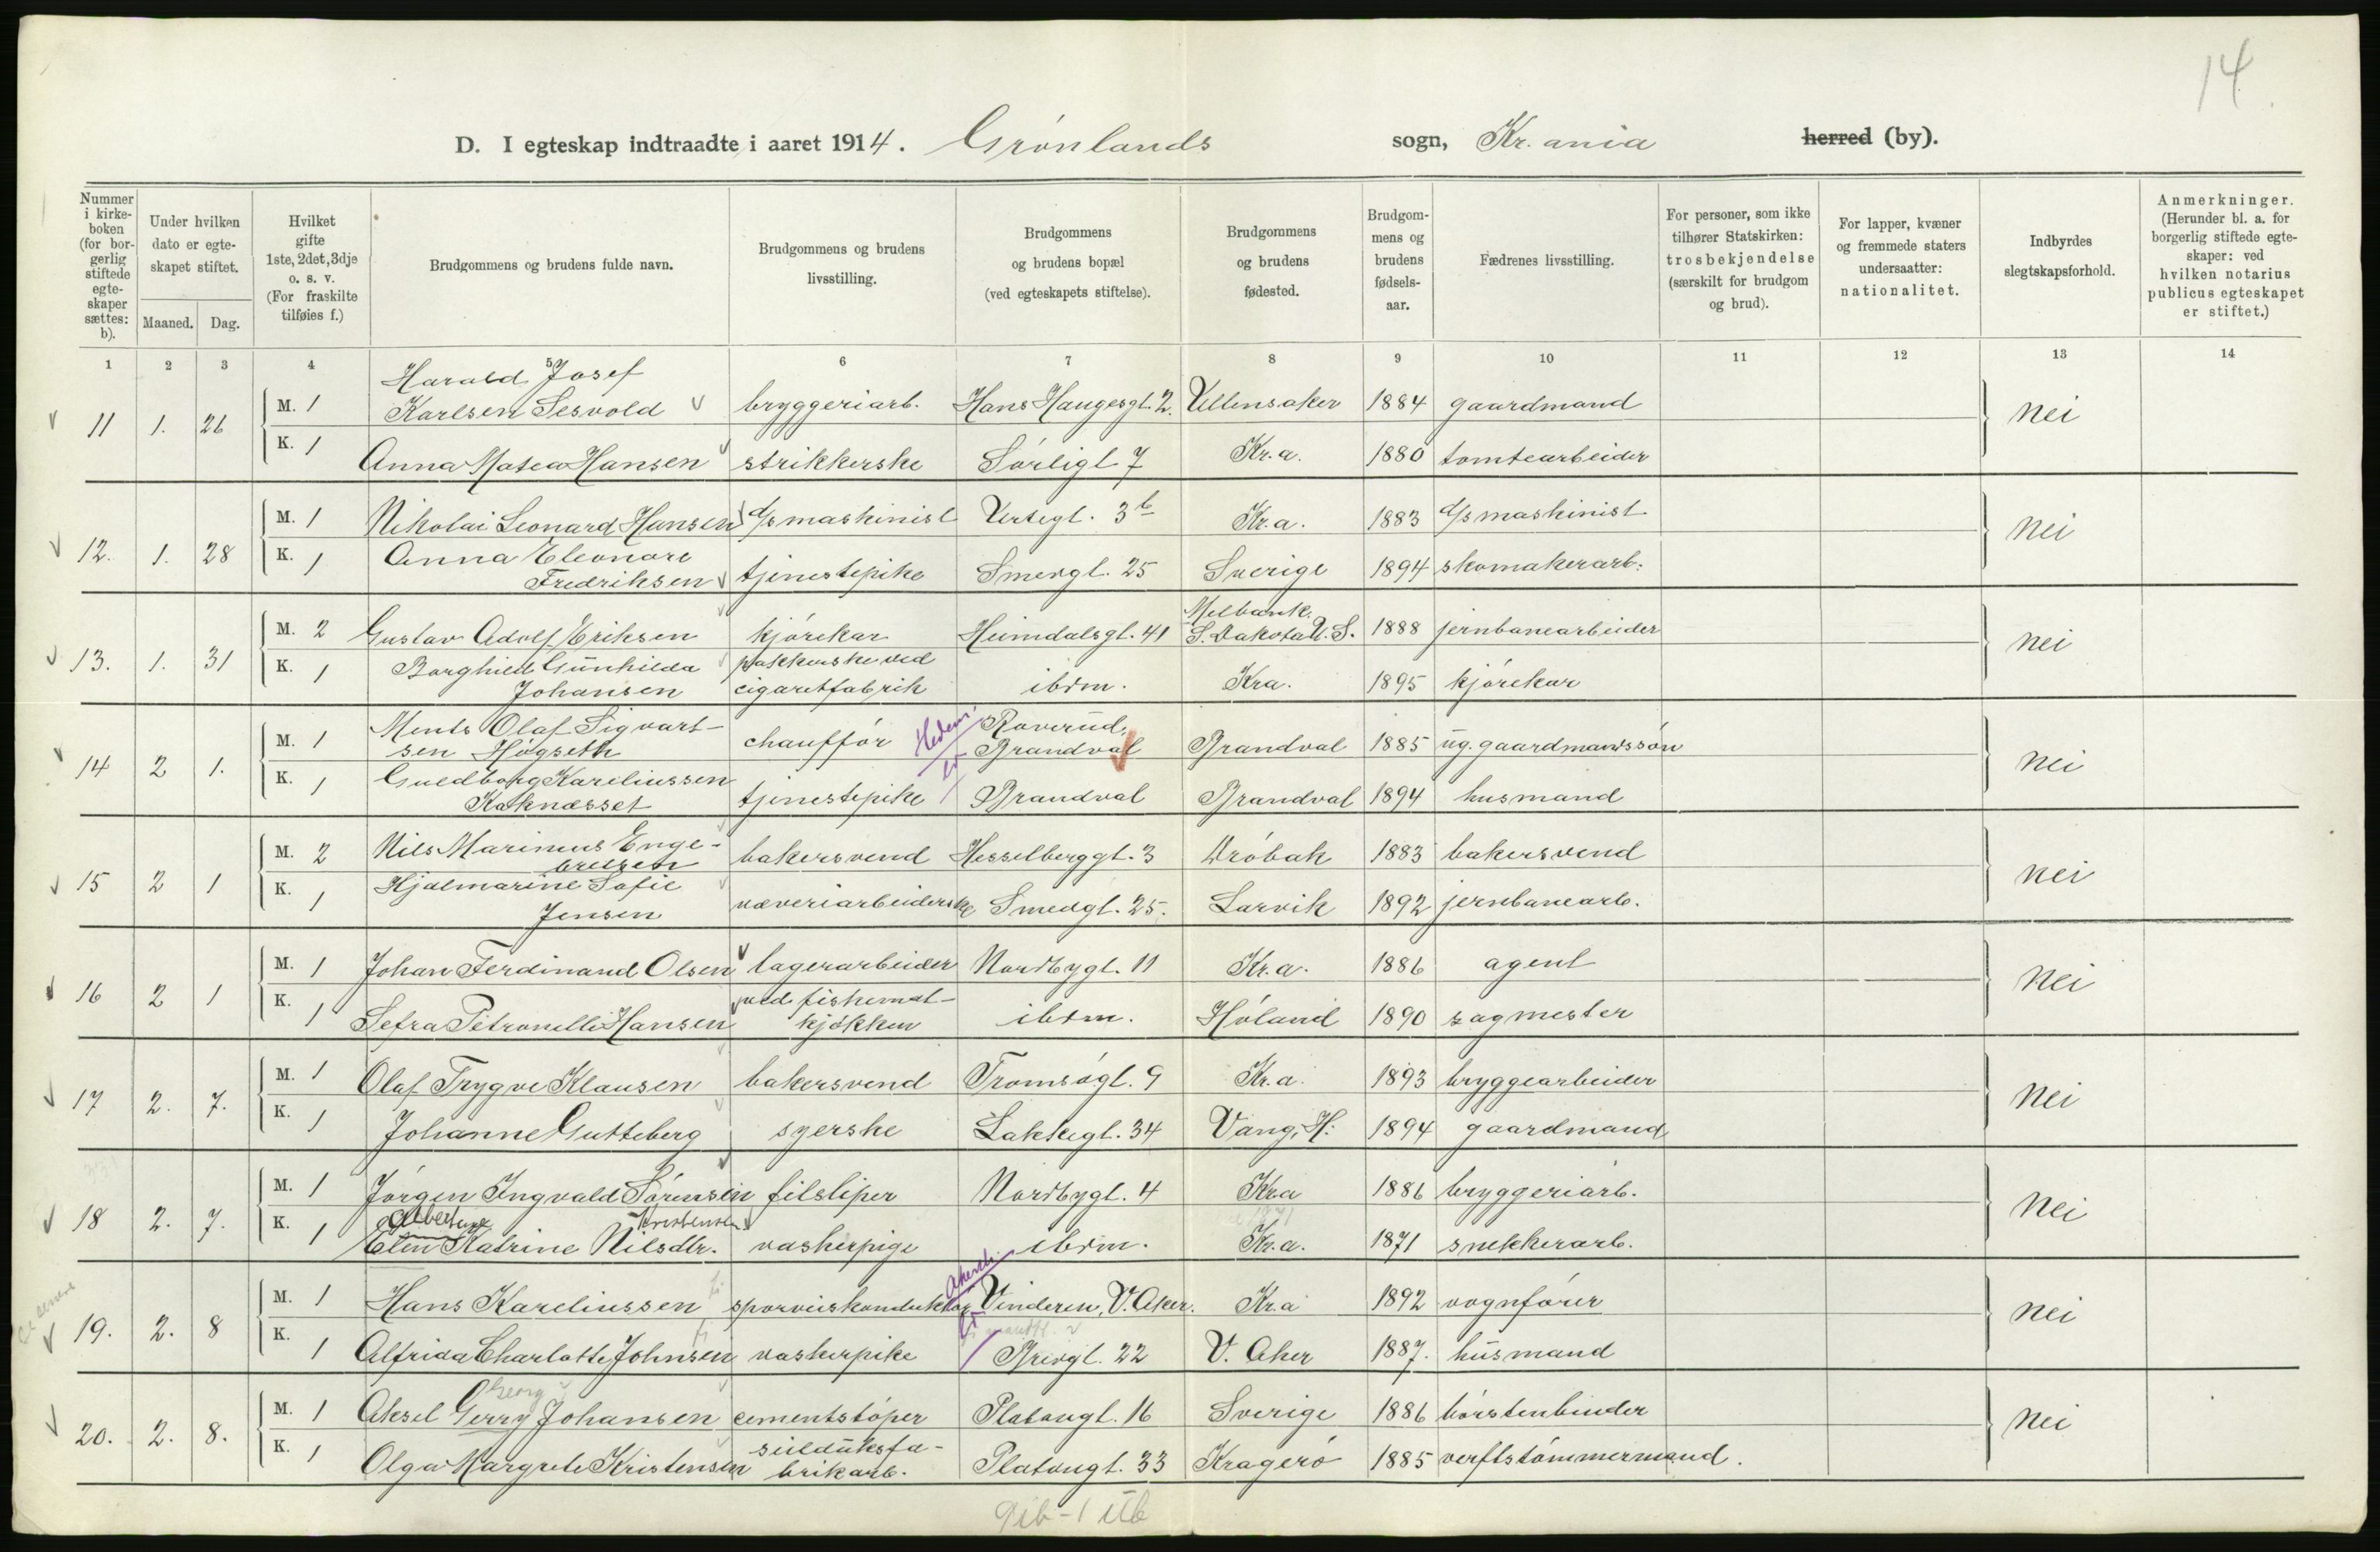 14
D. I egteskap indtraadte i aaret 1914. Grønlands sogn, Kr.ania herred (by).
Nummer i kirkeboken (for borgerlig stiftede egteskaper sættes: b).
Under hvilken dato er egteskapet stiftet.
Maaned. Dag.
Hvilket gifte 1ste, 2det, 3dje o. s. v. (For fraskilte tilføies f.)
Brudgommens og brudens fulde navn.
Brudgommens og brudens livsstilling.
Brudgommens og brudens bopæl (ved egteskapets stiftelse).
Brudgommens og brudens fødested.
Brudgommens og brudens fødselsaar.
Fædrenes livsstilling.
For personer, som ikke tilhører Statskirken: trosbekjendelse (særskilt for brudgom og brud).
For lapper, kvæner og fremmede staters undersaatter: nationalitet.
Indbyrdes slegtskapsforhold.
Anmerkninger. (Herunder bl. a. for borgerlig stiftede egteskaper: ved hvilken notarius publicus egteskapet er stiftet.)
1 2 3 4 5 6 7 8 9 10 11 12 13 14
11 1. 26 M. 1 Harald Josef Karlsen Sesvold bryggeriarb. Hans Haugesgt. 2. Ullensaker 1884 gaardmand nei
K. 1 Anna Matea Hansen strikkerske Sørligt 7 Kr.a. 1880 tomtearbeider
12. 1. 28 M. 1 Nikolai Leonard Hansen d/s maskinist Urtegt. 3b Kr.a. 1883 d/s maskinist nei
K. 1 Anna Eleonore Fredriksen tjenestepike Smedgt. 25 Sverige 1894 skomakerarb.
13. 1. 31 M. 2 Gustav Adolf Eriksen kjørekar Heimdalsgt. 41 Melbank. S. Dakota U. S. 1888 jernbanearbeider nei
K. 1 Borghild Gunhilda Johansen pakkerske ved cigaretfabrik ibdm. Kra. 1895 kjørekar
14 2 1. M. 1 Ments Olaf Sigvartsen Høgseth chauffør Hedem. Roverud, Brandval Brandval 1885 ug. gaardmandssøn nei
K. 1 Guldborg Kareliussen Kaknæsset tjenestepike Brandval Brandval 1894 husmand
15 2 1 M. 2 Nils Marinius Engebretsen bakersvend Hesselberggt. 3 Drøbak 1883 bakersvend nei
K. 1 Hjalmarine Sofie Jensen væveriarbeiderske Smedgt. 25. Larvik 1892 jernbanearb.
16 2 1 M. 1 Johan Ferdinand Olsen lagerarbeider Nordbygt. 11 Kr.a. 1886 agent nei
K. 1 Sefra Petronelle Hansen ved fiskematkjøkken ibdm. Høland 1890 sagmester
17 2. 7. M. 1 Olaf Trygve Klausen bakersvend Tromsøgt. 9 Kr.a. 1893 bryggearbeider nei
K. 1 Johanne Gutteberg syerske Lakkegt. 34 Vang, H. 1894 gaardmand
18 2. 7. M. 1 Jørgen Ingvald Sørensen filsliper Nordbygt. 4 Kra 1886 bryggeriarb. nei
K. 1 Albertine Elen Katrine Nilsdtr. Kristensen vaskerpige ibdm. Kr.a. 1871 snekkerarb.
19. 2. 8 M. 1 Hans Kareliussen sporveiskonduktør Akersh. Vinderen, V. Aker. Kr.a 1892 vognfører nei
K. 1 Alfrida Charlotte Johnsen vaskerpike Brevgt. 22 V. Aker 1887. husmand
20. 2. 8. M. 1 Aksel Gerry Georg Johansen cementstøper Platougt. 16 Sverige 1886 børstenbinder nei
K. 1 Olga Margrete Kristensen seilduksfabrikarb. Platougt. 33 Kragerø 1885 verftstømmermand.